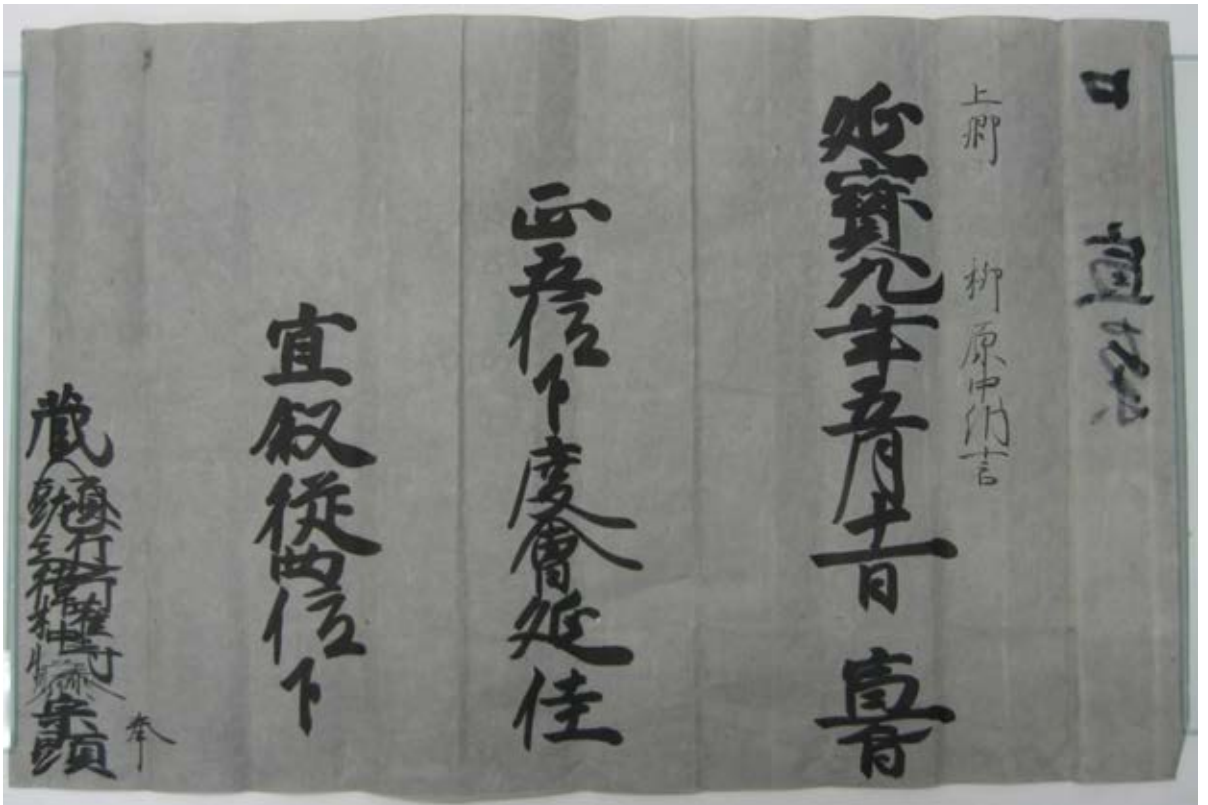 口 宣案
上卿 柳原中納言
延寶九年五月十一日 宣旨
正五位下度會延佳
宜叙從四位下
蔵人
奉